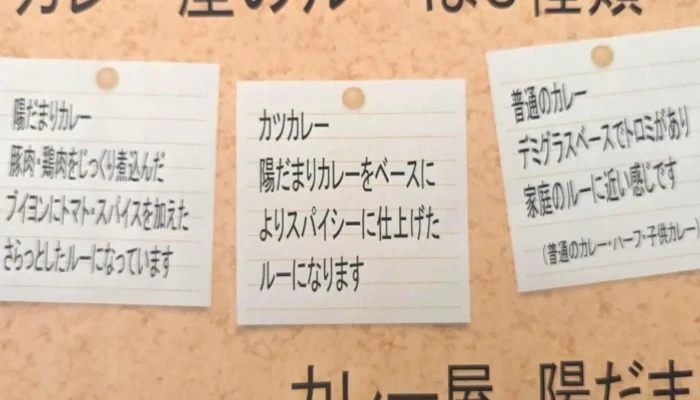 カレー屋のルーは3種類
陽だまりカレー
豚肉・鶏肉をじっくり煮込んだ
ブイヨンにトマト・スパイスを加えた
さらっとしたルーになっています
カツカレー
陽だまりカレーをベースに
よりスパイシーに仕上げた
ルーになります
普通のカレー
デミグラスベースでトロミがあり
家庭のルーに近い感じです
(普通のカレー・ハーフ・子供カレー)
カレー屋 陽だま